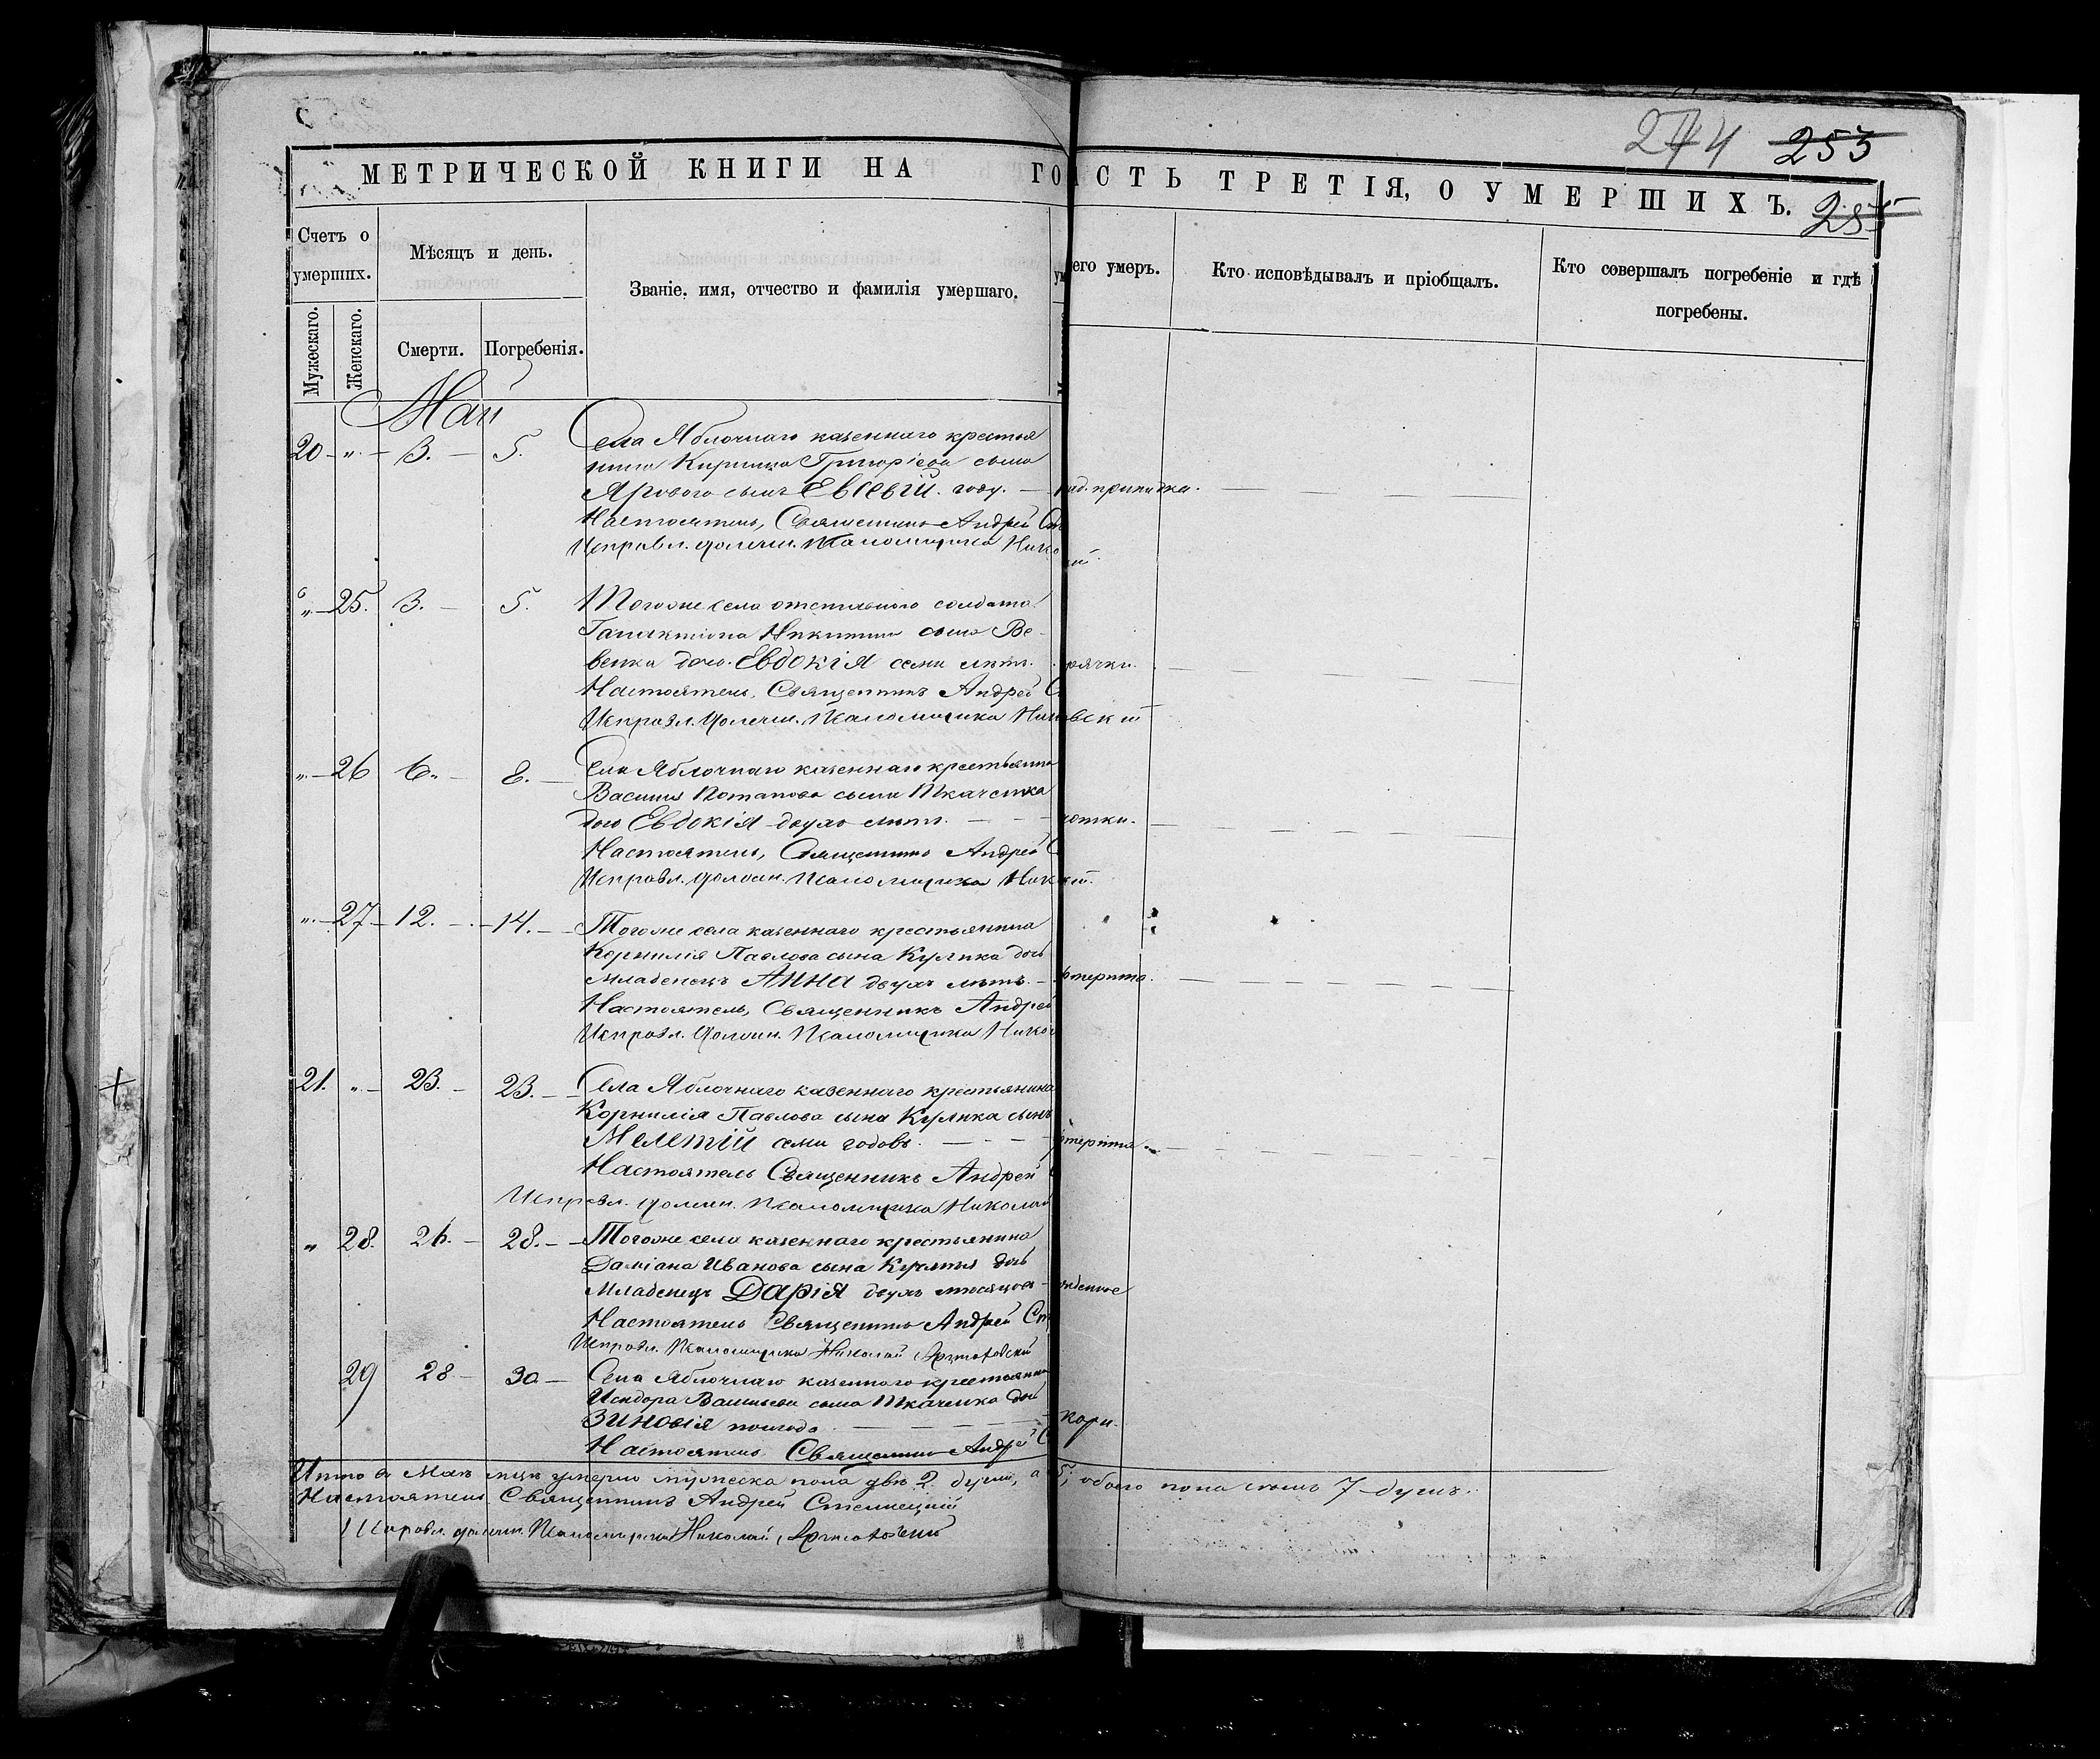 274 253
МЕТРИЧЕСКОЙ КНИГИ НА ГО
СТЬ ТРЕТІЯ, О УМЕРШИХЪ. 255
Счетъ о умершихъ.
Мѣсяцъ и день.
Званіе, имя, отчество и фамилія умершаго.
его умеръ.
Кто исповѣдывалъ и пріобщалъ.
Кто совершалъ погребеніе и гдѣ
погребены.
Мужескаго.
Женскаго.
Смерти.
Погребенія.
Май
20 " 3. 5. Села Яблочнаго казеннаго крестья
нина Григоріева сына
Ярового сынъ Евсевій. году. припадка.
Настоятель, Священникъ Андрей
Исправл. должн. Псаломщика
" 25. 3. 5. Тогоже села отставного солдата
Галактіона Никитина сына Ве-
венка дочь Евдокія семи лѣтъ. рячки.
Настоятель, Священникъ Андрей С
Исправл. должн. Псаломщика
" 26 6. 8. Села Яблочнаго казеннаго крестьянина
Василія Потапова сына Ткаченка
дочь Евдокія двухъ лѣтъ. отки.
Настоятель, Священникъ Андрей С
Исправл. должн. Псаломщика
" 27 12. 14. Тогоже села казеннаго крестьянина
Корнилія Павлова сына Кулика дочь
Младенецъ Анна двухъ лѣтъ. фтерита.
Настоятель, Священникъ Андрей
Исправл. должн. Псаломщика Никол
21. " 23. 23. Села Яблочнаго казеннаго крестьянина
Корнилія Павлова сына Кулика сынъ
Мелетій семи годовъ. фтерита.
Настоятель Священникъ Андрей
Исправл. должн. Псаломщика Николай
" 28. 26. 28. Тогоже села казеннаго крестьянина
Даміана Иванова сына дочь
Младенецъ Дарія двухъ мѣсяцовъ
Настоятель Священникъ Андрей Ст
Исправл. Псаломщика Николай
29 28 30 Села Яблочнаго казеннаго крестьянина
Исидора Васильева сына Ткаченка дочь
Зиновія полгода кори.
Настоятель Священникъ Андрей С
Итого въ Маѣ умерло мужеска пола двѣ 2 души, а 5, обоего пола семь 7 душъ.
Настоятель Священникъ Андрей
Исправл. должн. Псаломщика Николай